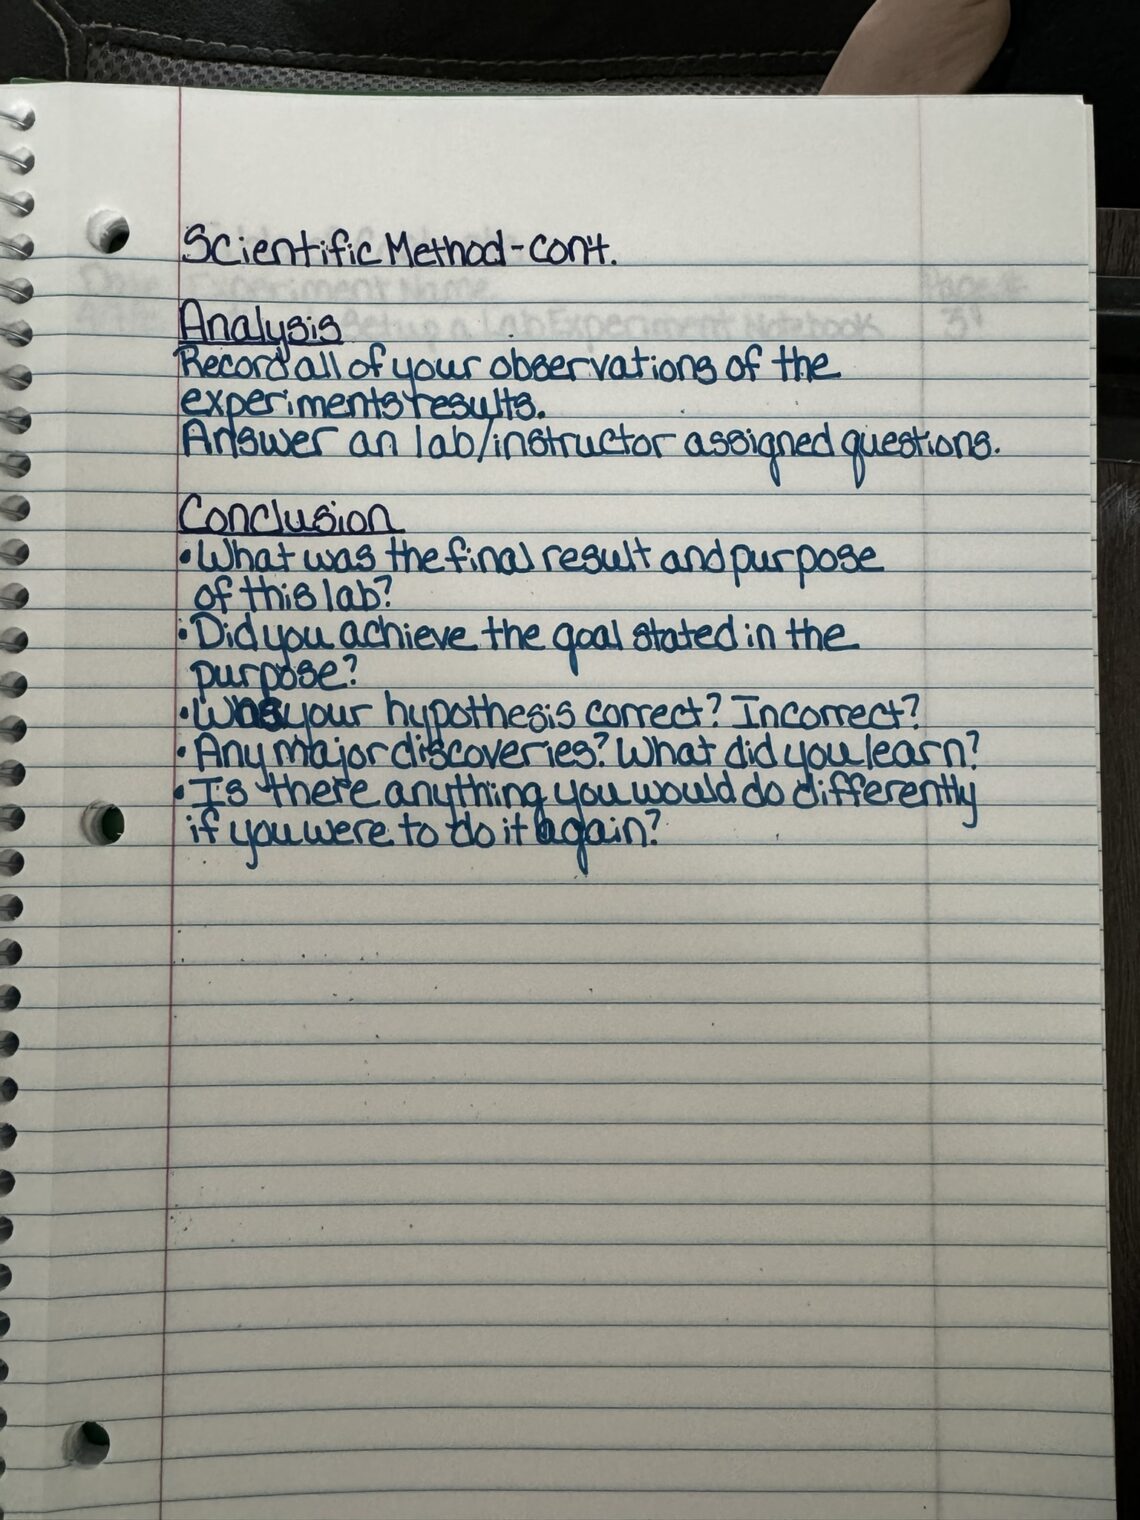 Scientific Method-con't.
Analysis
Record all of your observations of the
experiments results.
Answer an lab/instructor assigned questions.
Conclusion
•What was the final result and purpose
of this lab?
•Did you achieve the goal stated in the
purpose?
•Was your hypothesis correct? Incorrect?
•Any major discoveries? What did you learn?
•Is there anything you would do differently
if you were to do it again?